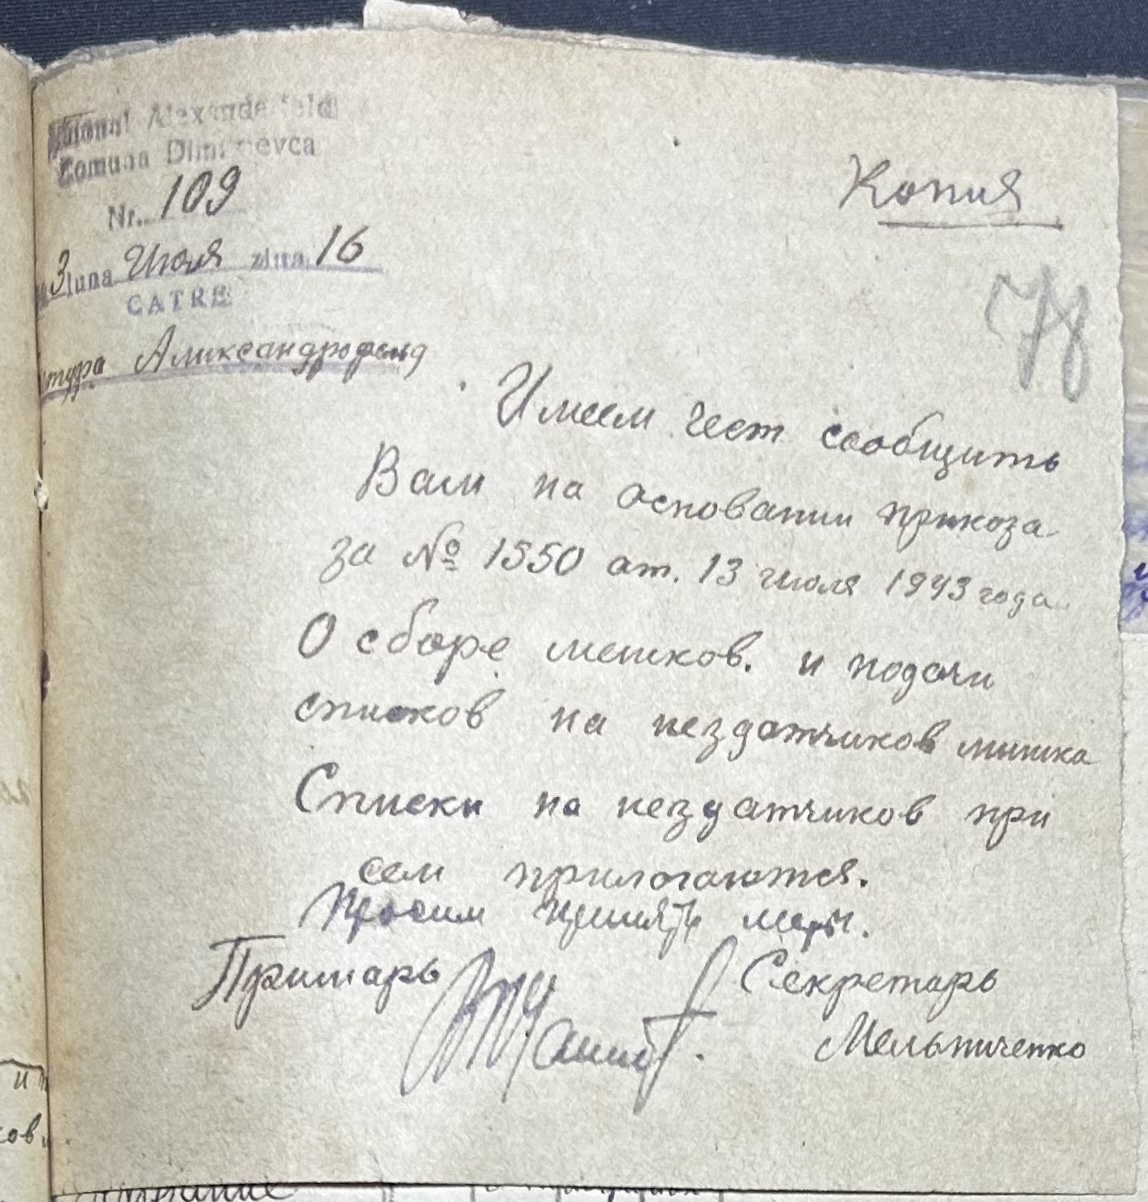 Raionul Alexanderfeld
Comuna Dimitrievca
Nr. 109
3 luna Июля ziua 16
CATRE
тура Александрофельд
Копия
78
Имеем чест сообщить
Вам на основании приказа
за № 1550 от. 13 июля 1943 года
О сборе мешков. и подачи
списков на нездатчиков мешка
Списки на нездатчиков при
сем прилогаются.
Просим принять меры.
Примарь
Секретарь
Мельниченко
и
ков.